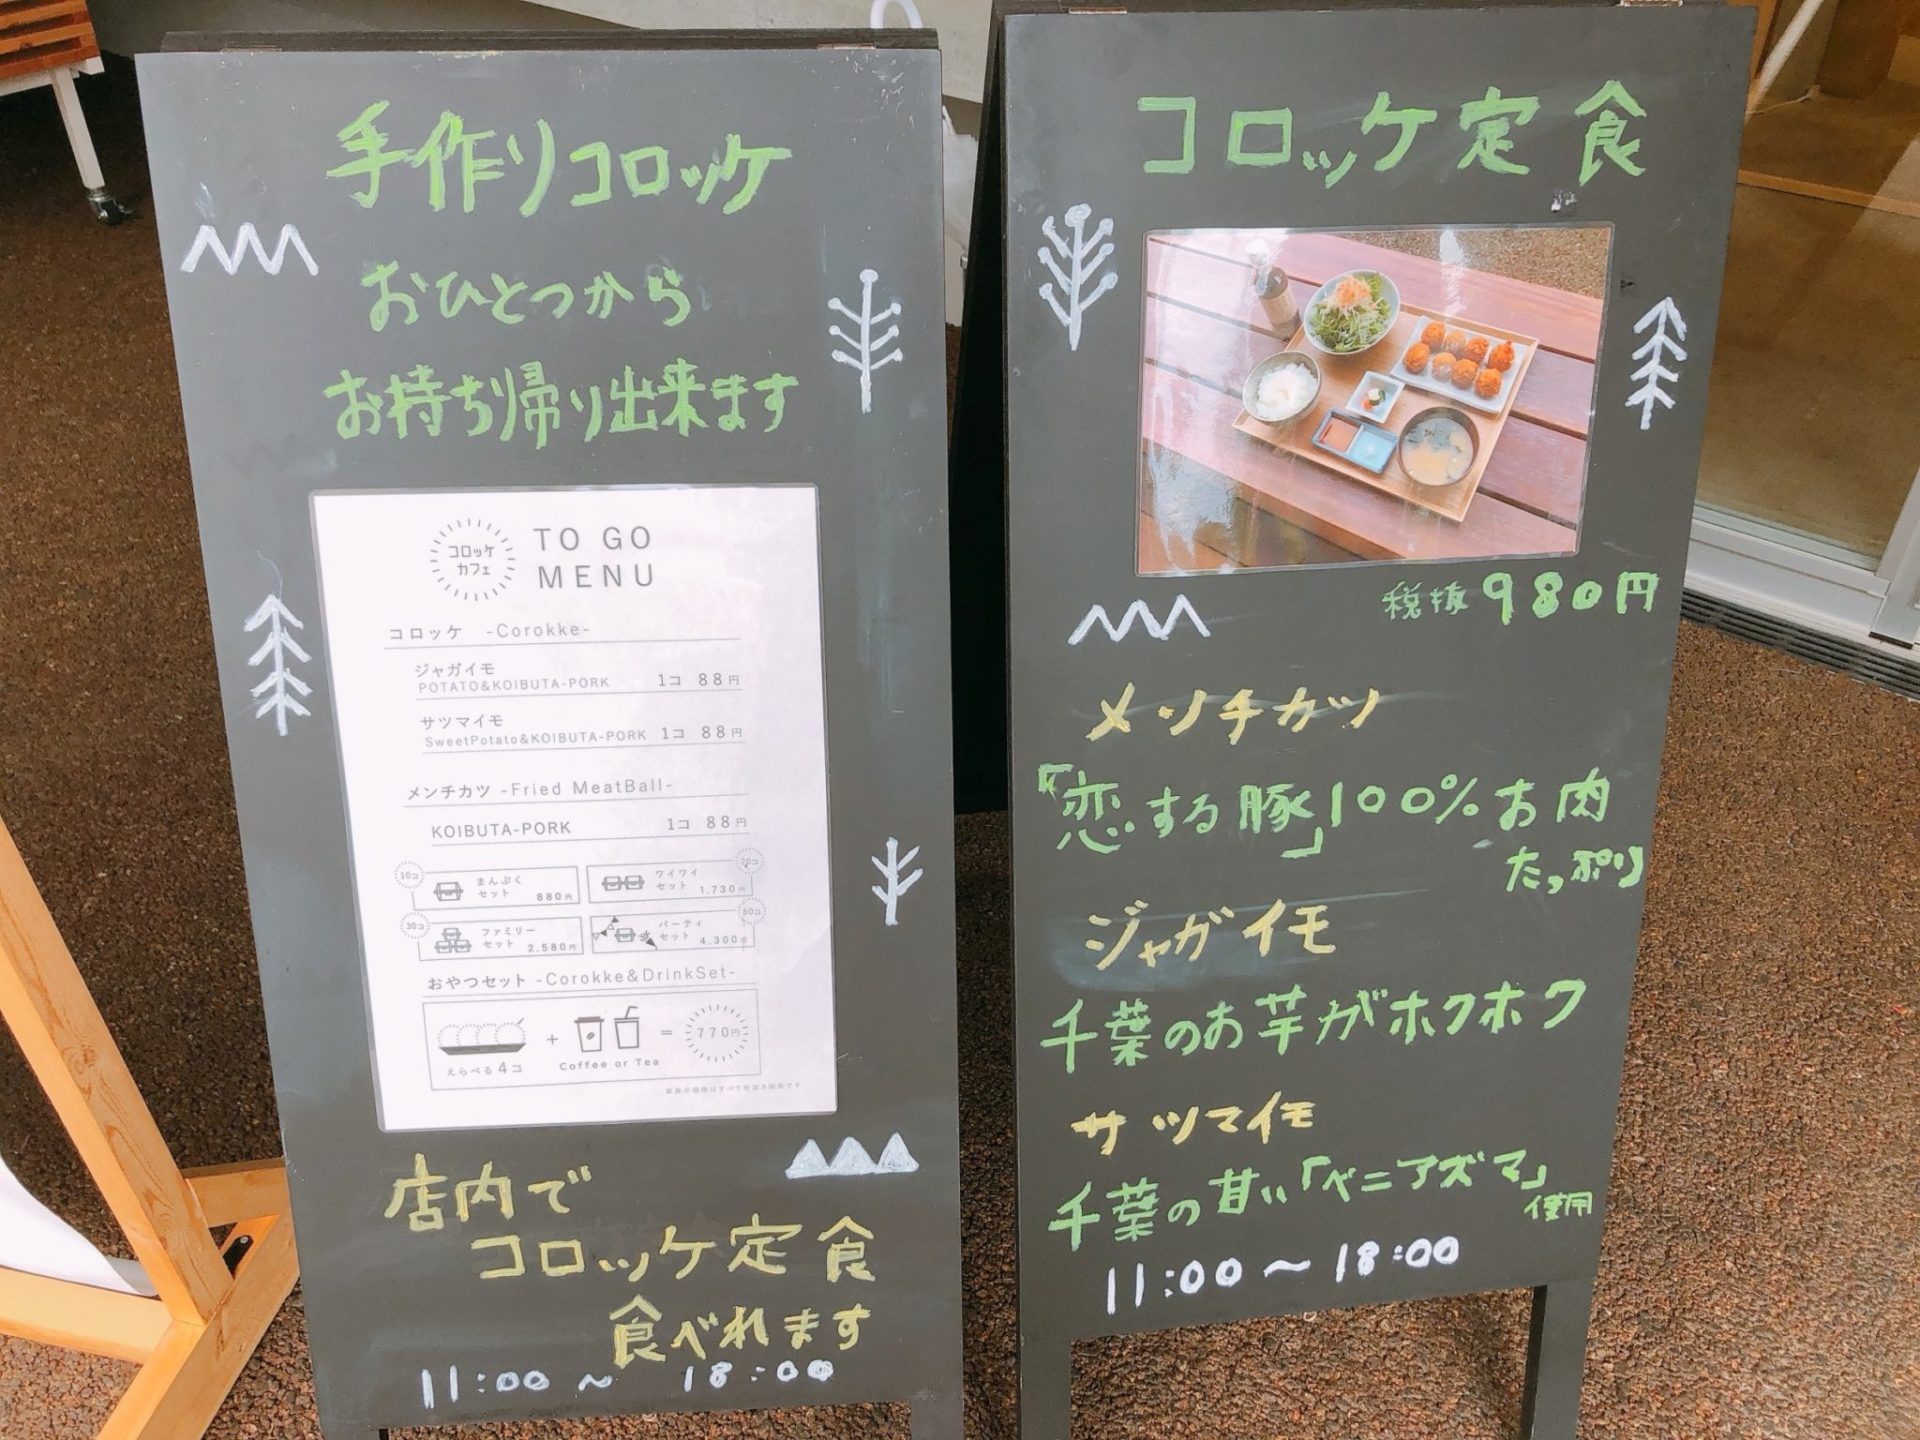 手作りコロッケ
おひとつから
お持ち帰り出来ます
コロッケ
カフェ
TO GO
MENU
コロッケ -Corokke-
ジャガイモ
POTATO&KOIBUTA-PORK 1コ 88円
サツマイモ
SweetPotato&KOIBUTA-PORK 1コ 88円
メンチカツ -Fried MeatBall-
KOIBUTA-PORK 1コ 88円
10コ まんぷく
セット 880円
20コ ワイワイ
セット 1,730円
30コ ファミリー
セット 2,580円
50コ パーティ
セット 4,300円
おやつセット -Corokke&DrinkSet-
+ = 770円
えらべる4コ Coffee or Tea
店内で
コロッケ定食
食べれます
11:00 ~ 18:00
コロッケ定食
税抜980円
メンチカツ
「恋する豚」100%お肉
たっぷり
ジャガイモ
千葉のお芋がホクホク
サツマイモ
千葉の甘い「ベニアズマ」
使用
11:00 ~ 18:00